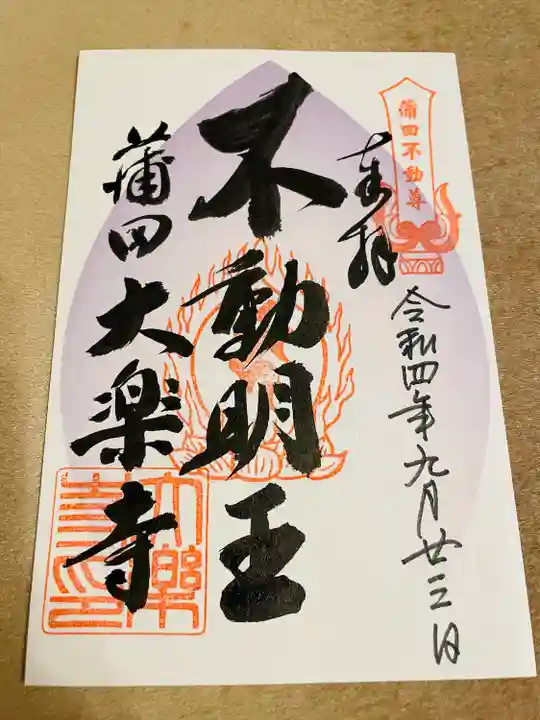 蒲田不動尊
奉拝
令和四年九月廿三日
不動明王
蒲田大楽寺
大樂寺印